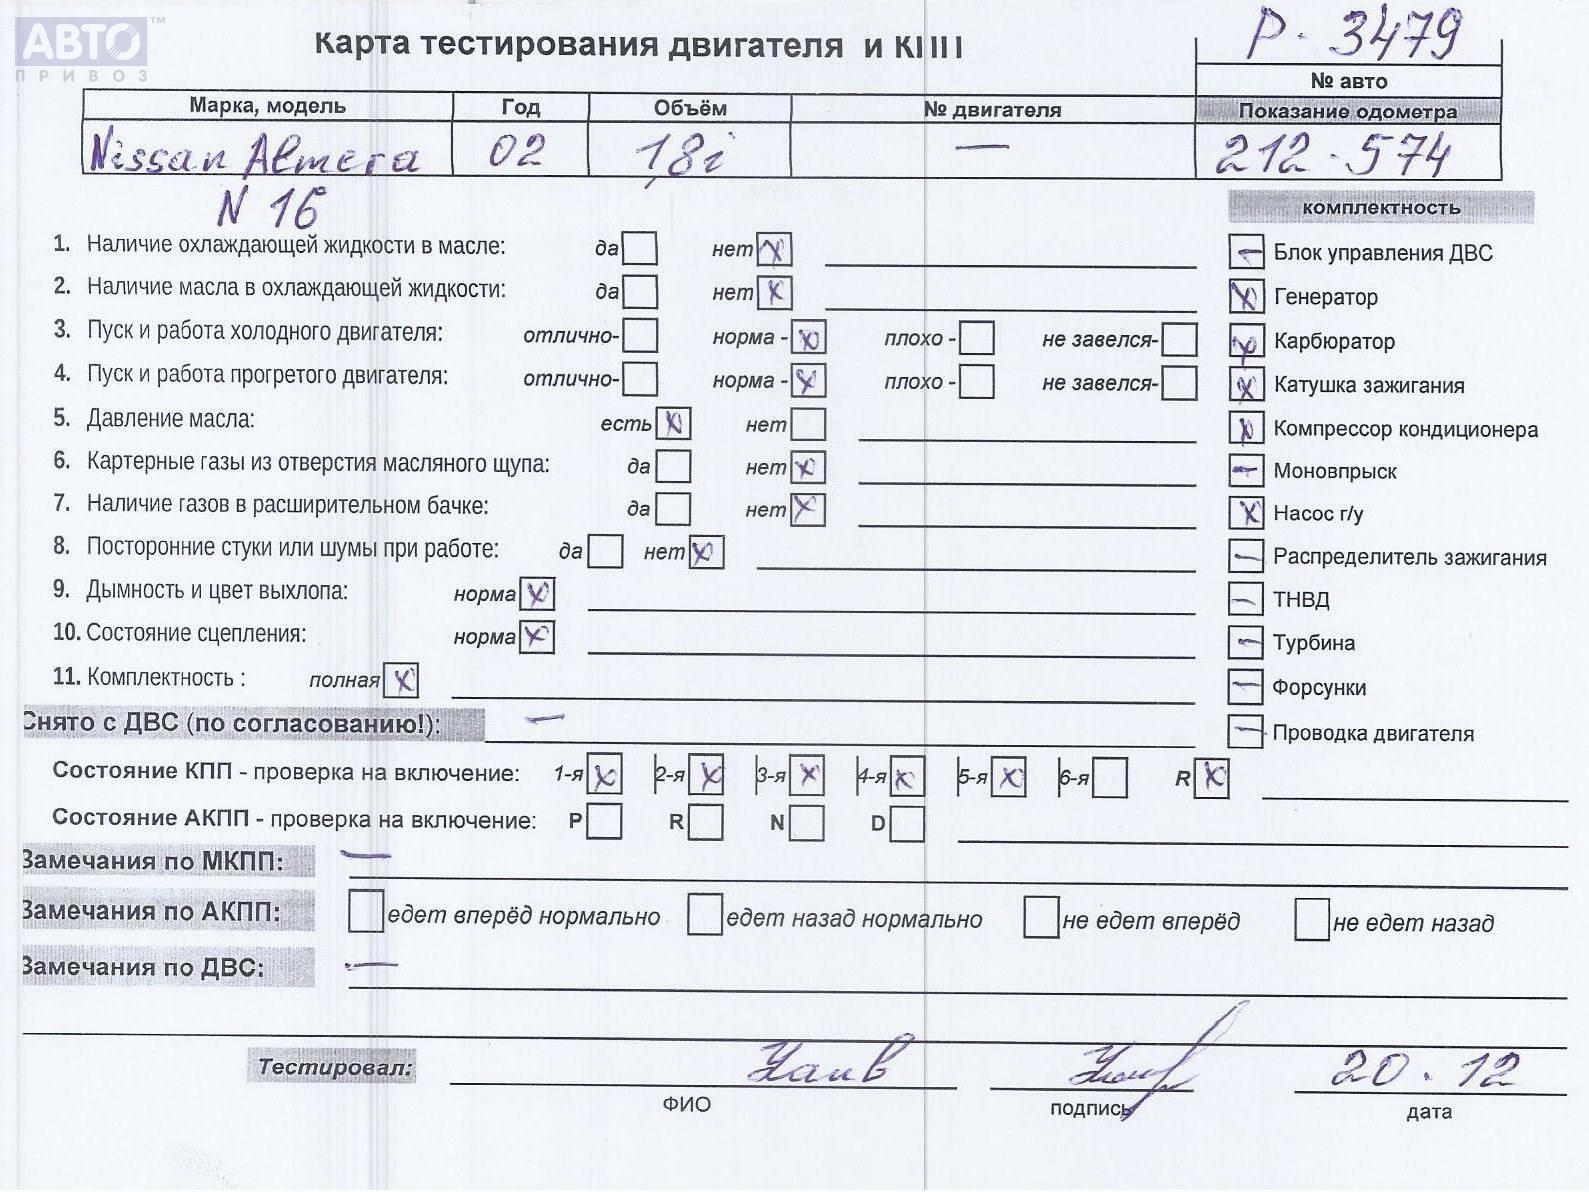 АВТО™
ПРИВОЗ
Карта тестирования двигателя и КПП
Р. 3479
№ авто
Марка, модель Год Объём № двигателя Показание одометра
Nissan Almera 02 1,8i — 212.574
N 16
комплектность
1. Наличие охлаждающей жидкости в масле: да нет x
2. Наличие масла в охлаждающей жидкости: да нет x
3. Пуск и работа холодного двигателя: отлично- норма - x плохо - не завелся-
4. Пуск и работа прогретого двигателя: отлично- норма - x плохо - не завелся-
5. Давление масла: есть x нет
6. Картерные газы из отверстия масляного щупа: да нет x
7. Наличие газов в расширительном бачке: да нет x
8. Посторонние стуки или шумы при работе: да нет x
9. Дымность и цвет выхлопа: норма x
10. Состояние сцепления: норма x
11. Комплектность : полная x
— Блок управления ДВС
x Генератор
x Карбюратор
x Катушка зажигания
x Компрессор кондиционера
— Моновпрыск
x Насос г/у
— Распределитель зажигания
— ТНВД
— Турбина
— Форсунки
— Проводка двигателя
Снято с ДВС (по согласованию!): —
Состояние КПП - проверка на включение: 1-я x 2-я x 3-я x 4-я x 5-я x 6-я R x
Состояние АКПП - проверка на включение: P R N D
Замечания по МКПП: —
Замечания по АКПП: едет вперёд нормально едет назад нормально не едет вперёд не едет назад
Замечания по ДВС: —
Тестировал: 20.12
ФИО подпись дата